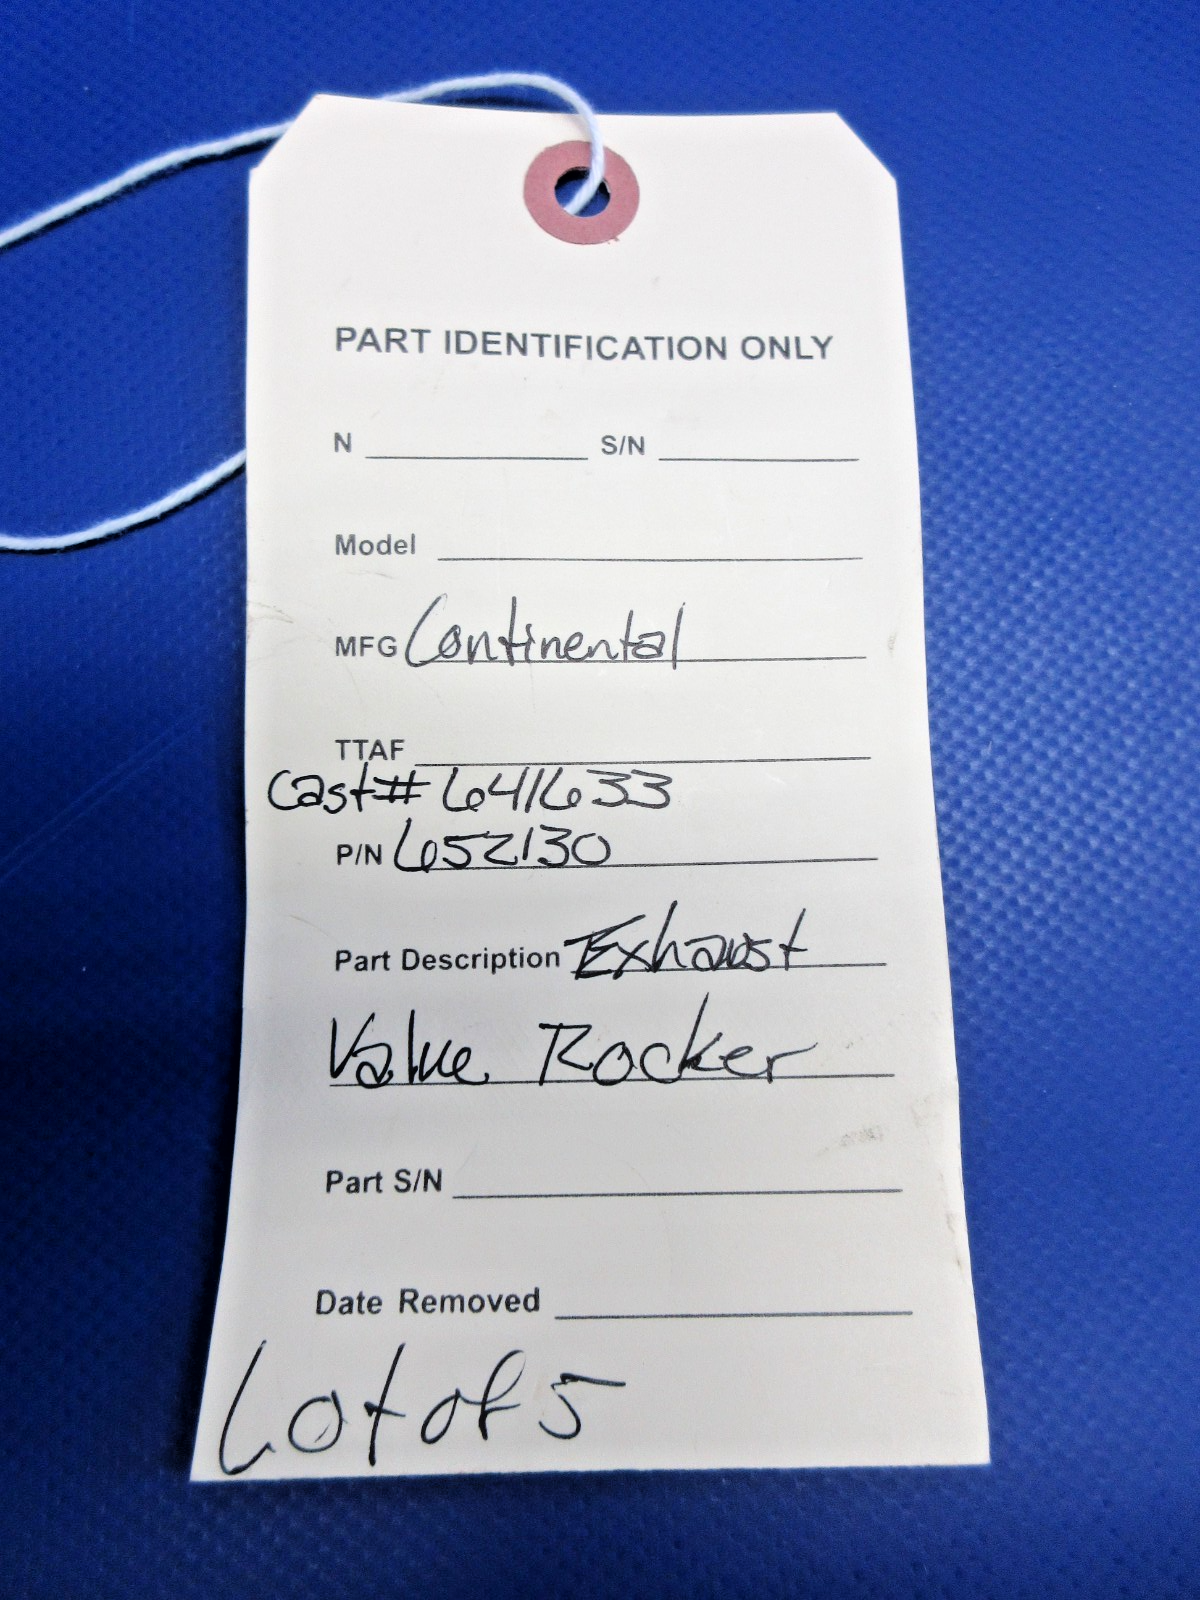 PART IDENTIFICATION ONLY
N S/N
Model
MFG Continental
TTAF
Cast# 641633
P/N 652130
Part Description Exhaust
Valve Rocker
Part S/N
Date Removed
Lot of 5